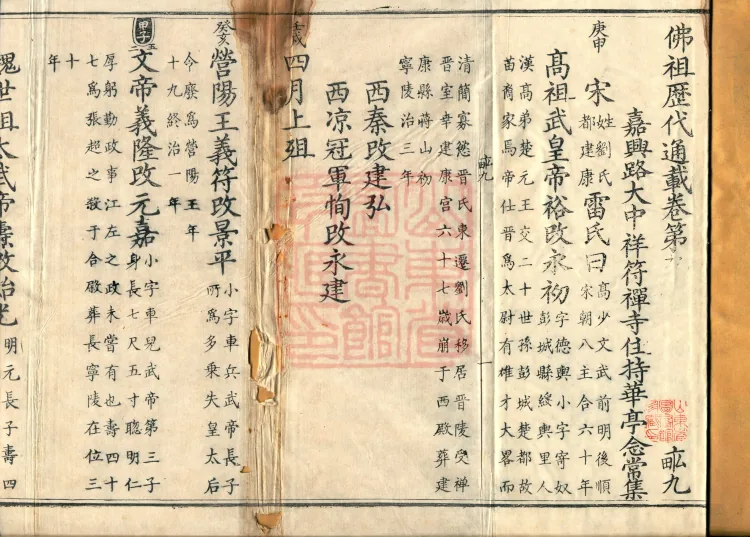 佛祖歷代通載卷第
畝九
嘉興路大中祥符禪寺住持華亭念常集
庚申
宋 姓劉氏都建康 雷氏曰 高少文武前明後順宋朝八主合六十年
高祖武皇帝裕改永初 字德輿小字寄奴彭城縣綏輿里人
漢高弟楚元王交二十世孫彭城楚都故
苗裔家焉帝仕晉爲太尉有雄才大畧而
畝九
清簡寡慾晉氏東遷劉氏移居晉陵受禪
晉室幸建康宫六十七歲崩于西殿葬建
康縣蔣山初
寧陵治三年
西秦改建弘
西凉冠軍恂改永建
壬戌
四月上殂
癸亥
營陽王義符改景平 小字車兵武帝長子所爲多乗失皇太后
令廢爲營陽王年
十九終治一年
甲子
文帝義隆改元嘉 小字車兒武帝第三子身長七尺五寸聰明仁
厚躬勤政事江左之政未嘗有也壽四十
七爲張超之殺于合殿葬長寧陵在位三
十
年
魏世祖太武帝燾改始光 明元長子壽四